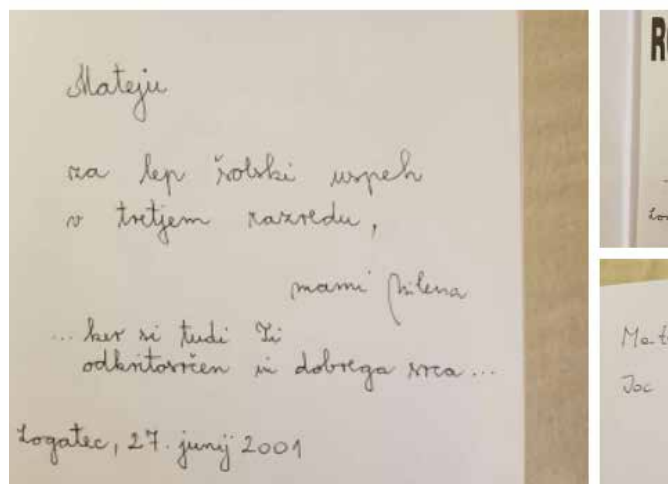 Mateju
za lep šolski uspeh
v tretjem razredu,
mami Milena
... ker si tudi Ti
odkritosrčen in dobrega srca ...
Logatec, 27. junij 2001